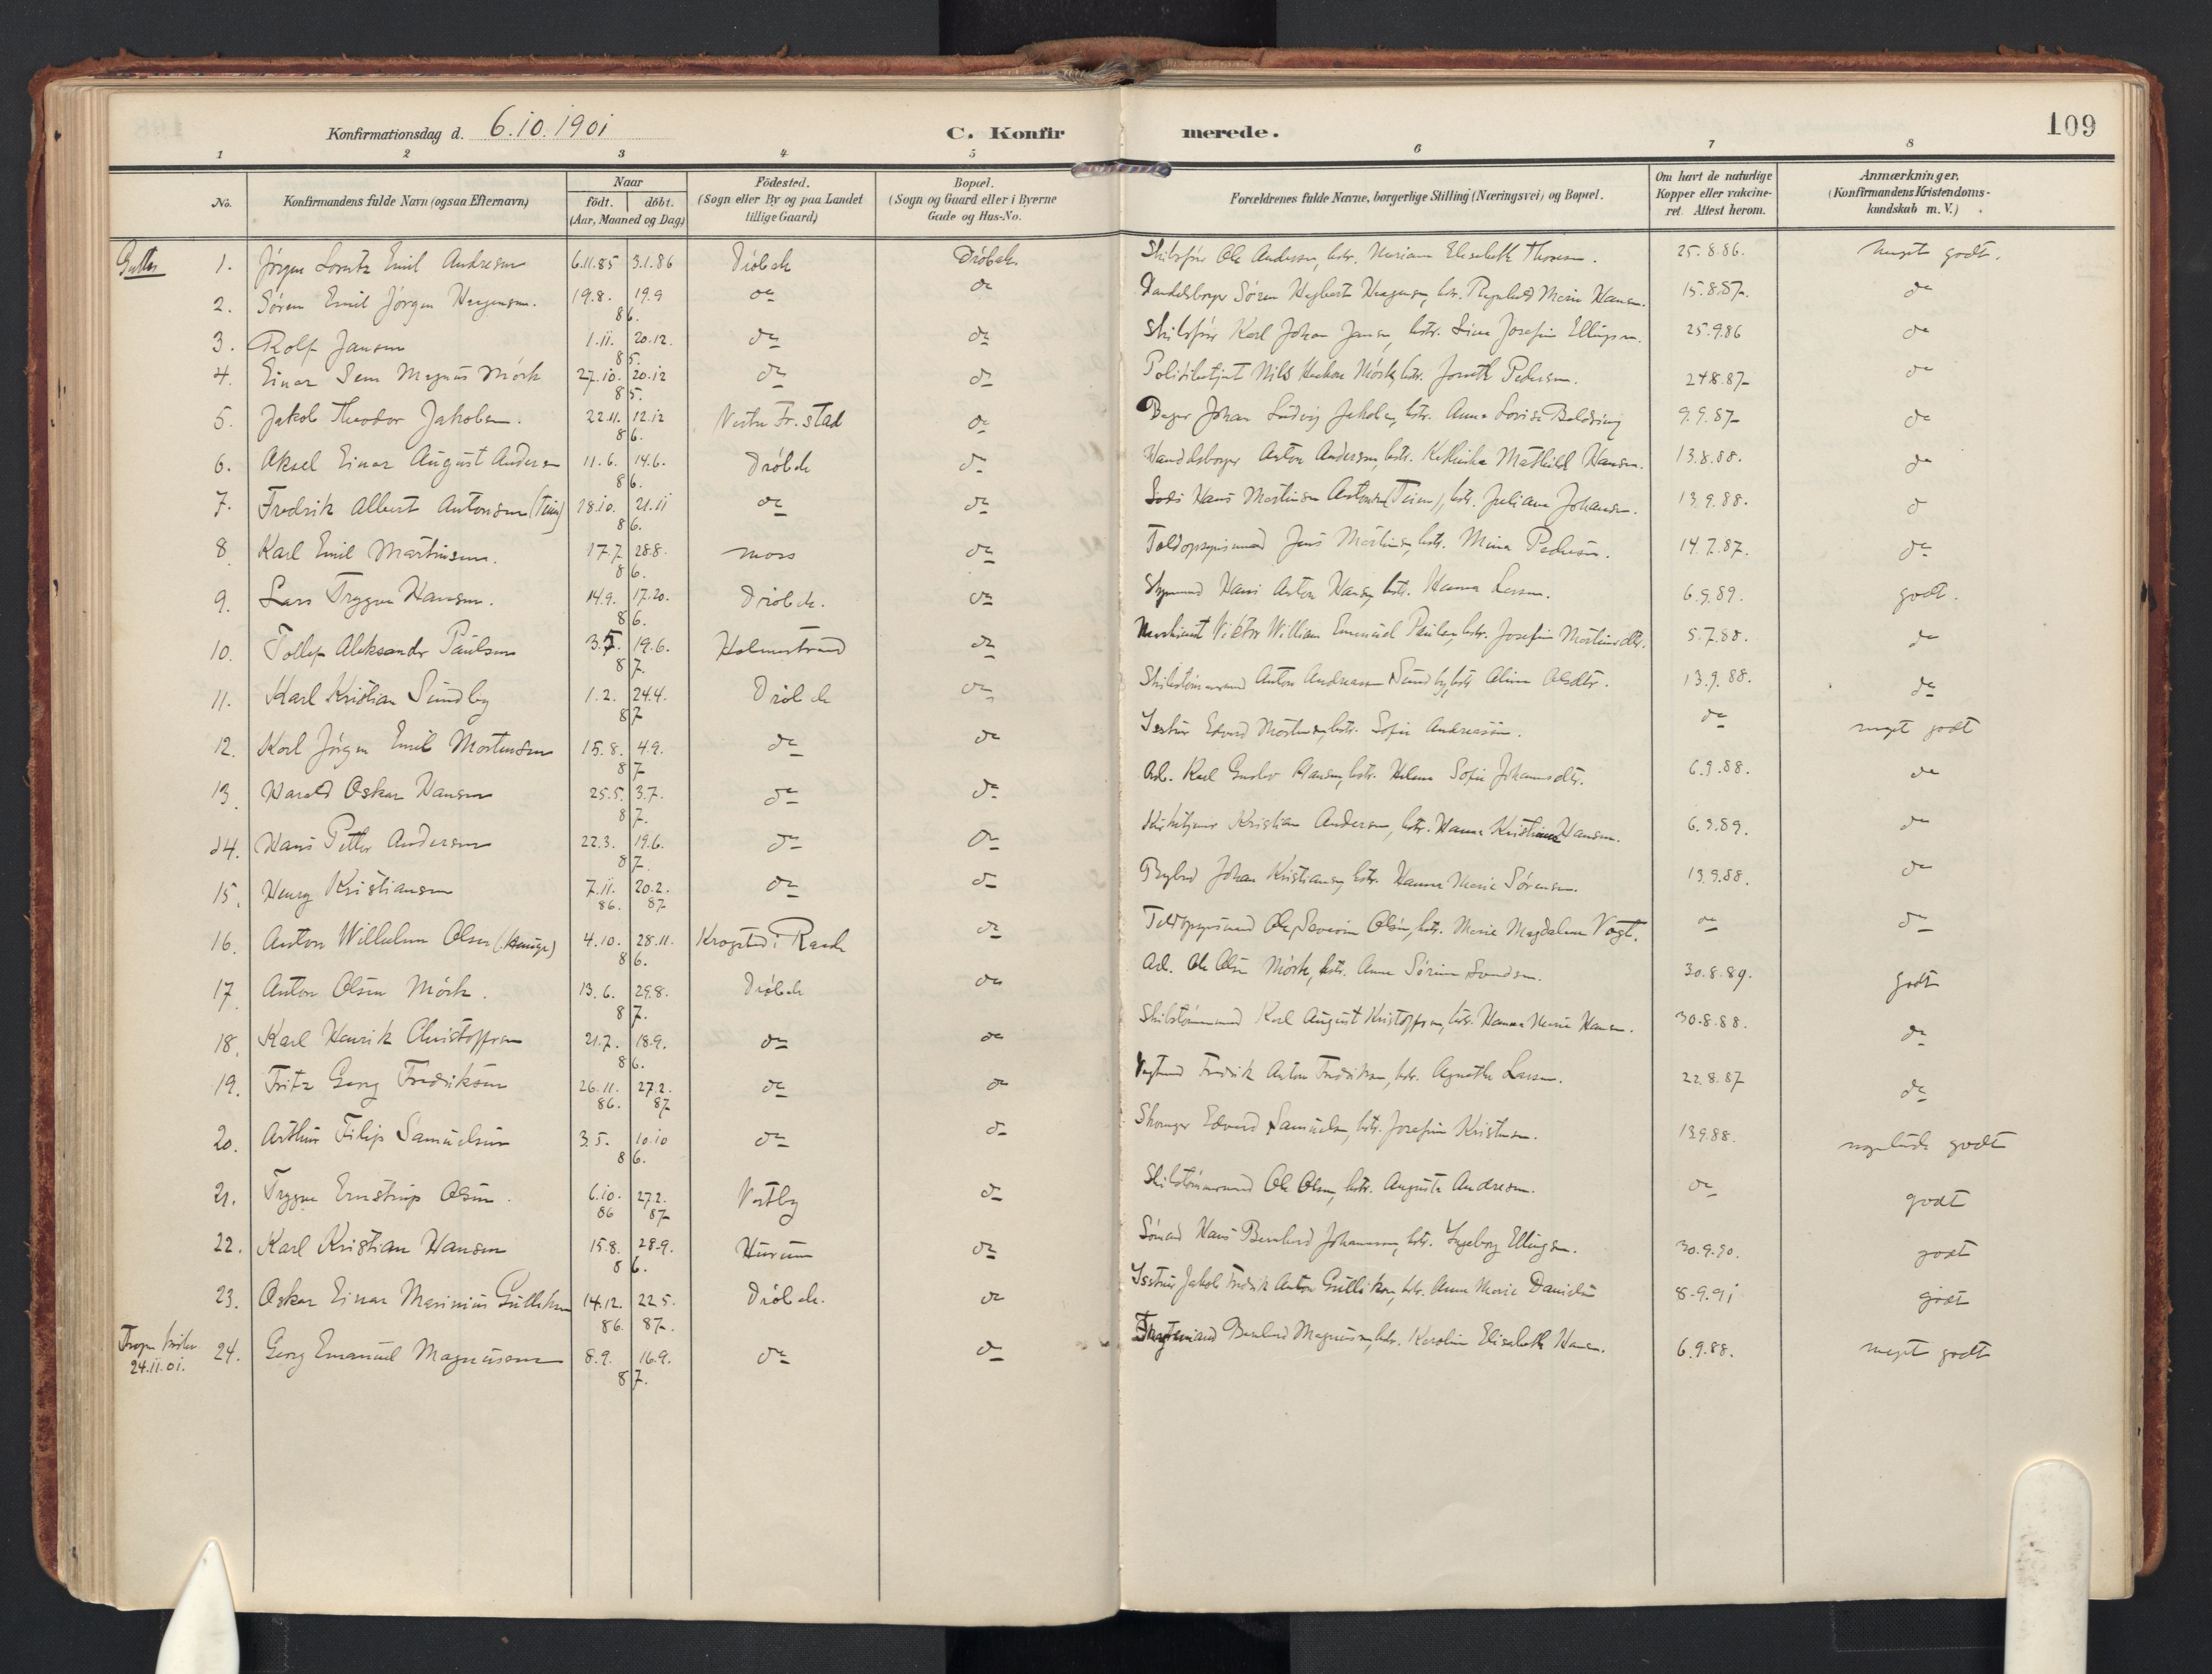 Konfirmationsdag d. 6.10.1901
C. Konfirmerede.
109
1 2 3 4 5 6 7 8
No.
Konfirmandens fulde Navn (ogsaa Efternavn)
Naar
födt. döbt.
(Aar, Maaned og Dag)
Födested.
(Sogn eller By og paa Landet
tillige Gaard)
Bopæl.
(Sogn og Gaard eller i Byerne
Gade og Hus-No.
Forældrenes fulde Navne, borgerlige Stilling (Næringsvei) og Bopæl.
Om havt de naturlige
Kopper eller vakcine-
ret Attest herom.
Anmærkninger,
(Konfirmandens Kristendoms-
kundskab m. V.)
Gutter 1. Jörgen Lorentz Emil Andresen 6.11.85 3.1.86 Dröbak Dröbak Ole Andersen, hstr. Elisabeth Thoresen. 25.8.86. meget godt.
2. Sören Emil Jörgen 19.8. 19.9 86. do do Handelsborger Sören hstr. Marie Hansen. 15.8.87. do
3. Rolf Jansen 1.11. 20.12. 85. do do Karl Johan Jansen, hstr. Lina Josefine Ellingsen. 25.9.86 do
4. Einar Magnus Mörk 27.10. 20.12 85. do do Politibetjent Nils Mörk, hstr. Pedersen. 24.8.87 do
5. Jakob Theodor Jakobsen. 22.11. 12.12 86. Vestre Fr.stad do Bager Johan Ludvig Jakobsen, hstr. Anna Lovise 9.9.87 do
6. Aksel Einar August Andersen 11.6. 14.6. 86. Dröbak do Handelsborger Anton Andersen, hstr. Mathilde Hansen. 13.8.88. do
7. Fredrik Albert Antonsen 28.10. 21.11 86. do do Lods Hans Martinsen Antonsen hstr. Juliane Johansen. 13.9.88. do
8. Karl Emil Martinsen. 17.7. 28.8. 86. Moss do Toldopsynsmand Jens Martinsen, hstr. Mina Pedersen. 14.7.87. do
9. Lars Trygve Hansen. 14.9. 17.20. 86. Dröbak. do Hans Anton Hansen, hstr. Hanna Larsen. 6.9.89. godt.
10. Tollef Aleksander Paulsen 19.6. 87. Holmestrand do Maskinist Viktor William Emanuel Paulsen, hstr. Josefine 5.7.88. do
11. Karl Kristian Sundby 1.2. 24.4. 87 Dröbak do Skibstömmermand Anton Andreasen Sundby, hstr. Olsdtr. 13.9.88. do
12. Karl Jörgen Emil Mortensen 15.8. 4.9. 87 do do Edvard Mortensen, hstr. Sofie Andreassen. do meget godt
13. Harald Oskar Hansen 25.5. 3.7. 87. do do Arb. Karl Gustav Hansen, hstr. Helene Sofie Johannesdtr. 6.9.88. do
14. Hans Petter Andersen 22.3. 19.6. 87. do do Kirketjener Kristian Andersen, hstr. Hanna Kristine Hansen. 6.9.89. do
15. Henry Kristiansen 7.11. 86. 20.2. 87 do do Bybud Johan Kristiansen, hstr. Hanna Marie Sörensen. 13.9.88. do
16. Anton Wilhelm Olsen 4.10. 28.11. 86. Krogstad i do Toldopsynsmand Ole Severin Olsen, hstr. Marie Magdalene Vogt. do do
17. Anton Olsen Mörk. 13.6. 29.8. 87. Dröbak do Arb. Ole Olsen Mörk, hstr. Anne Sörine 30.8.89. godt
18. Karl Henrik Christoffersen 21.7. 18.9. 86. do do Skibstömmermand Karl August Kristoffersen, hstr. Hanna Marie Hansen. 30.8.88. do
19. Fritz Georg Fredriksen 26.11. 86. 27.2. 87 do do Fredrik Anton Fredriksen, hstr. Agnethe Larsen. 22.8.87 do
20. Arthur Filip Samuelsen 3.5. 10.10 86. do do Edvard Samuelsen, hstr. Josefine Kristensen. 13.9.88. nogenlunde godt
21. Trygve Olsen. 6.10. 86 27.2. 87 Vestby do Skibstömmermand Ole Olsen, hstr. Augusta Andresen. do godt
22. Karl Kristian Hansen 15.8. 28.9. 86. Hurum do Sömand Hans Bernhard Johannesen, hstr. Ingeborg Ellingsen. 30.9.90. godt
23. Oskar Einar Marinius Gulliksen 14.12. 86. 22.5. 87. Dröbak. do Jakob Fredrik Anton Gulliksen, hstr. Anne Marie Danielsen 8.9.91 godt
24.11.01. 24. Georg Emanuel Magnussen 8.9. 16.9. 87. do do Bernhard Magnussen, hstr. Karoline Elisabeth Hansen. 6.9.88. meget godt